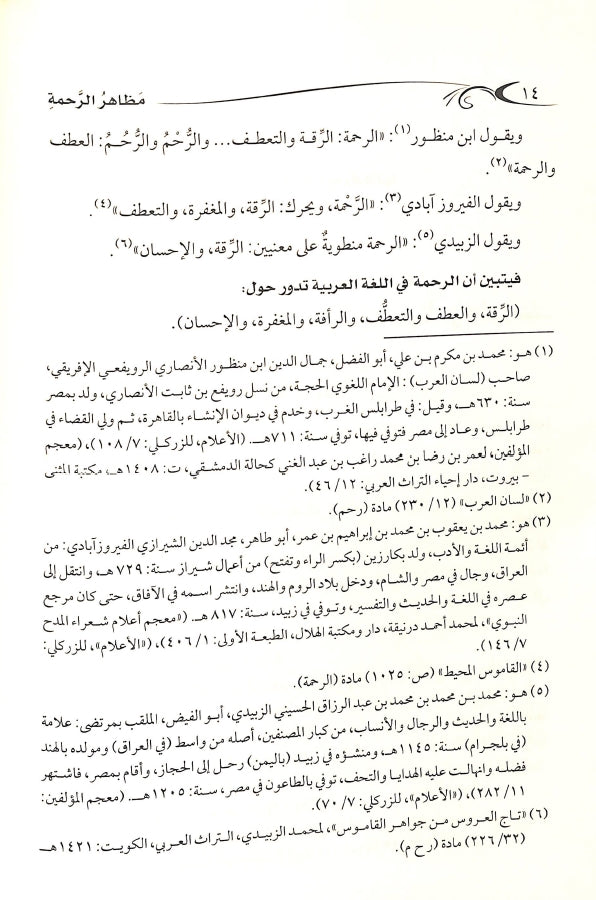 ١٤
مَظاهرُ الرَّحمةِ
ويقول ابن منظور(١): «الرحمة: الرِّقة والتعطف... والرُّحْمُ والرُّحُمُ: العطف
والرحمة»(٢).
ويقول الفيروز آبادي(٣): «الرَّحْمة، ويحرك: الرِّقة، والمغفرة، والتعطف»(٤).
ويقول الزبيدي(٥): «الرحمة منطويةٌ على معنيين: الرِّقة، والإحسان»(٦).
فيتبين أن الرحمة في اللغة العربية تدور حول:
(الرِّقة، والعطف والتعطُّف، والرأفة، والمغفرة، والإحسان).
(١) هو: محمد بن مكرم بن علي، أبو الفضل، جمال الدين ابن منظور الأنصاري الرويفعي الإفريقي،
صاحب (لسان العرب): الإمام اللغوي الحجة، من نسل رويفع بن ثابت الأنصاري، ولد بمصر
سنة: ٦٣٠هـ، وقيل: في طرابلس الغرب، وخدم في ديوان الإنشاء بالقاهرة، ثم ولي القضاء في
طرابلس، وعاد إلى مصر فتوفي فيها، توفي سنة: ٧١١هـ. (الأعلام، للزركلي: ٧/ ١٠٨)، (معجم
المؤلفين، لعمر بن رضا بن محمد راغب بن عبد الغني كحالة الدمشقي، ت: ١٤٠٨هـ، مكتبة المثنى
- بيروت، دار إحياء التراث العربي: ١٢/ ٤٦).
(٢) «لسان العرب» (١٢/ ٢٣٠) مادة (رحم).
(٣) هو: محمد بن يعقوب بن محمد بن إبراهيم بن عمر، أبو طاهر، مجد الدين الشيرازي الفيروزآبادي: من
أئمة اللغة والأدب، ولد بكارزين (بكسر الراء وتفتح) من أعمال شيراز سنة: ٧٢٩هـ، وانتقل إلى
العراق، وجال في مصر والشام، ودخل بلاد الروم والهند، وانتشر اسمه في الآفاق، حتى كان مرجع
عصره في اللغة والحديث والتفسير، وتوفي في زبيد، سنة: ٨١٧هـ. («معجم أعلام شعراء المدح
النبوي»، لمحمد أحمد درنيقة، دار ومكتبة الهلال، الطبعة الأولى: ١/ ٤٠٦)، («الأعلام»، للزركلي:
٧/ ١٤٦).
(٤) «القاموس المحيط» (ص: ١٠٢٥) مادة (الرحمة).
(٥) هو: محمد بن محمد بن محمد بن عبد الرزاق الحسيني الزبيدي، أبو الفيض، الملقب بمرتضى: علامة
باللغة والحديث والرجال والأنساب، من كبار المصنفين، أصله من واسط (في العراق) ومولده بالهند
(في بلجرام) سنة: ١١٤٥هـ، ومنشؤه في زبيد (باليمن) رحل إلى الحجاز، وأقام بمصر، فاشتهر
فضله وانهالت عليه الهدايا والتحف، توفي بالطاعون في مصر، سنة: ١٢٠٥هـ. (معجم المؤلفين:
١١/ ٢٨٢)، («الأعلام»، للزركلي: ٧/ ٧٠).
(٦) «تاج العروس من جواهر القاموس»، لمحمد الزبيدي، التراث العربي، الكويت: ١٤٢١هـ
(٣٢/ ٢٢٦) مادة (ر ح م).